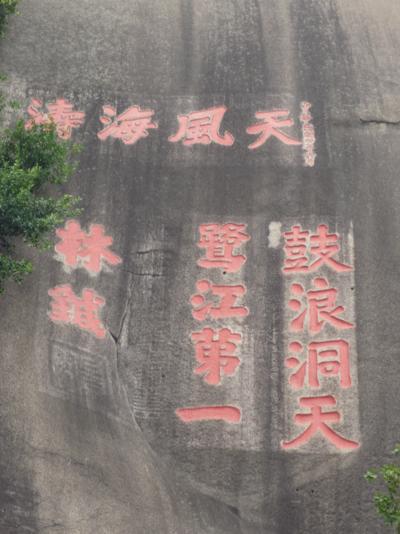 天風海濤
鼓浪洞天
鷺江第一
林鍼